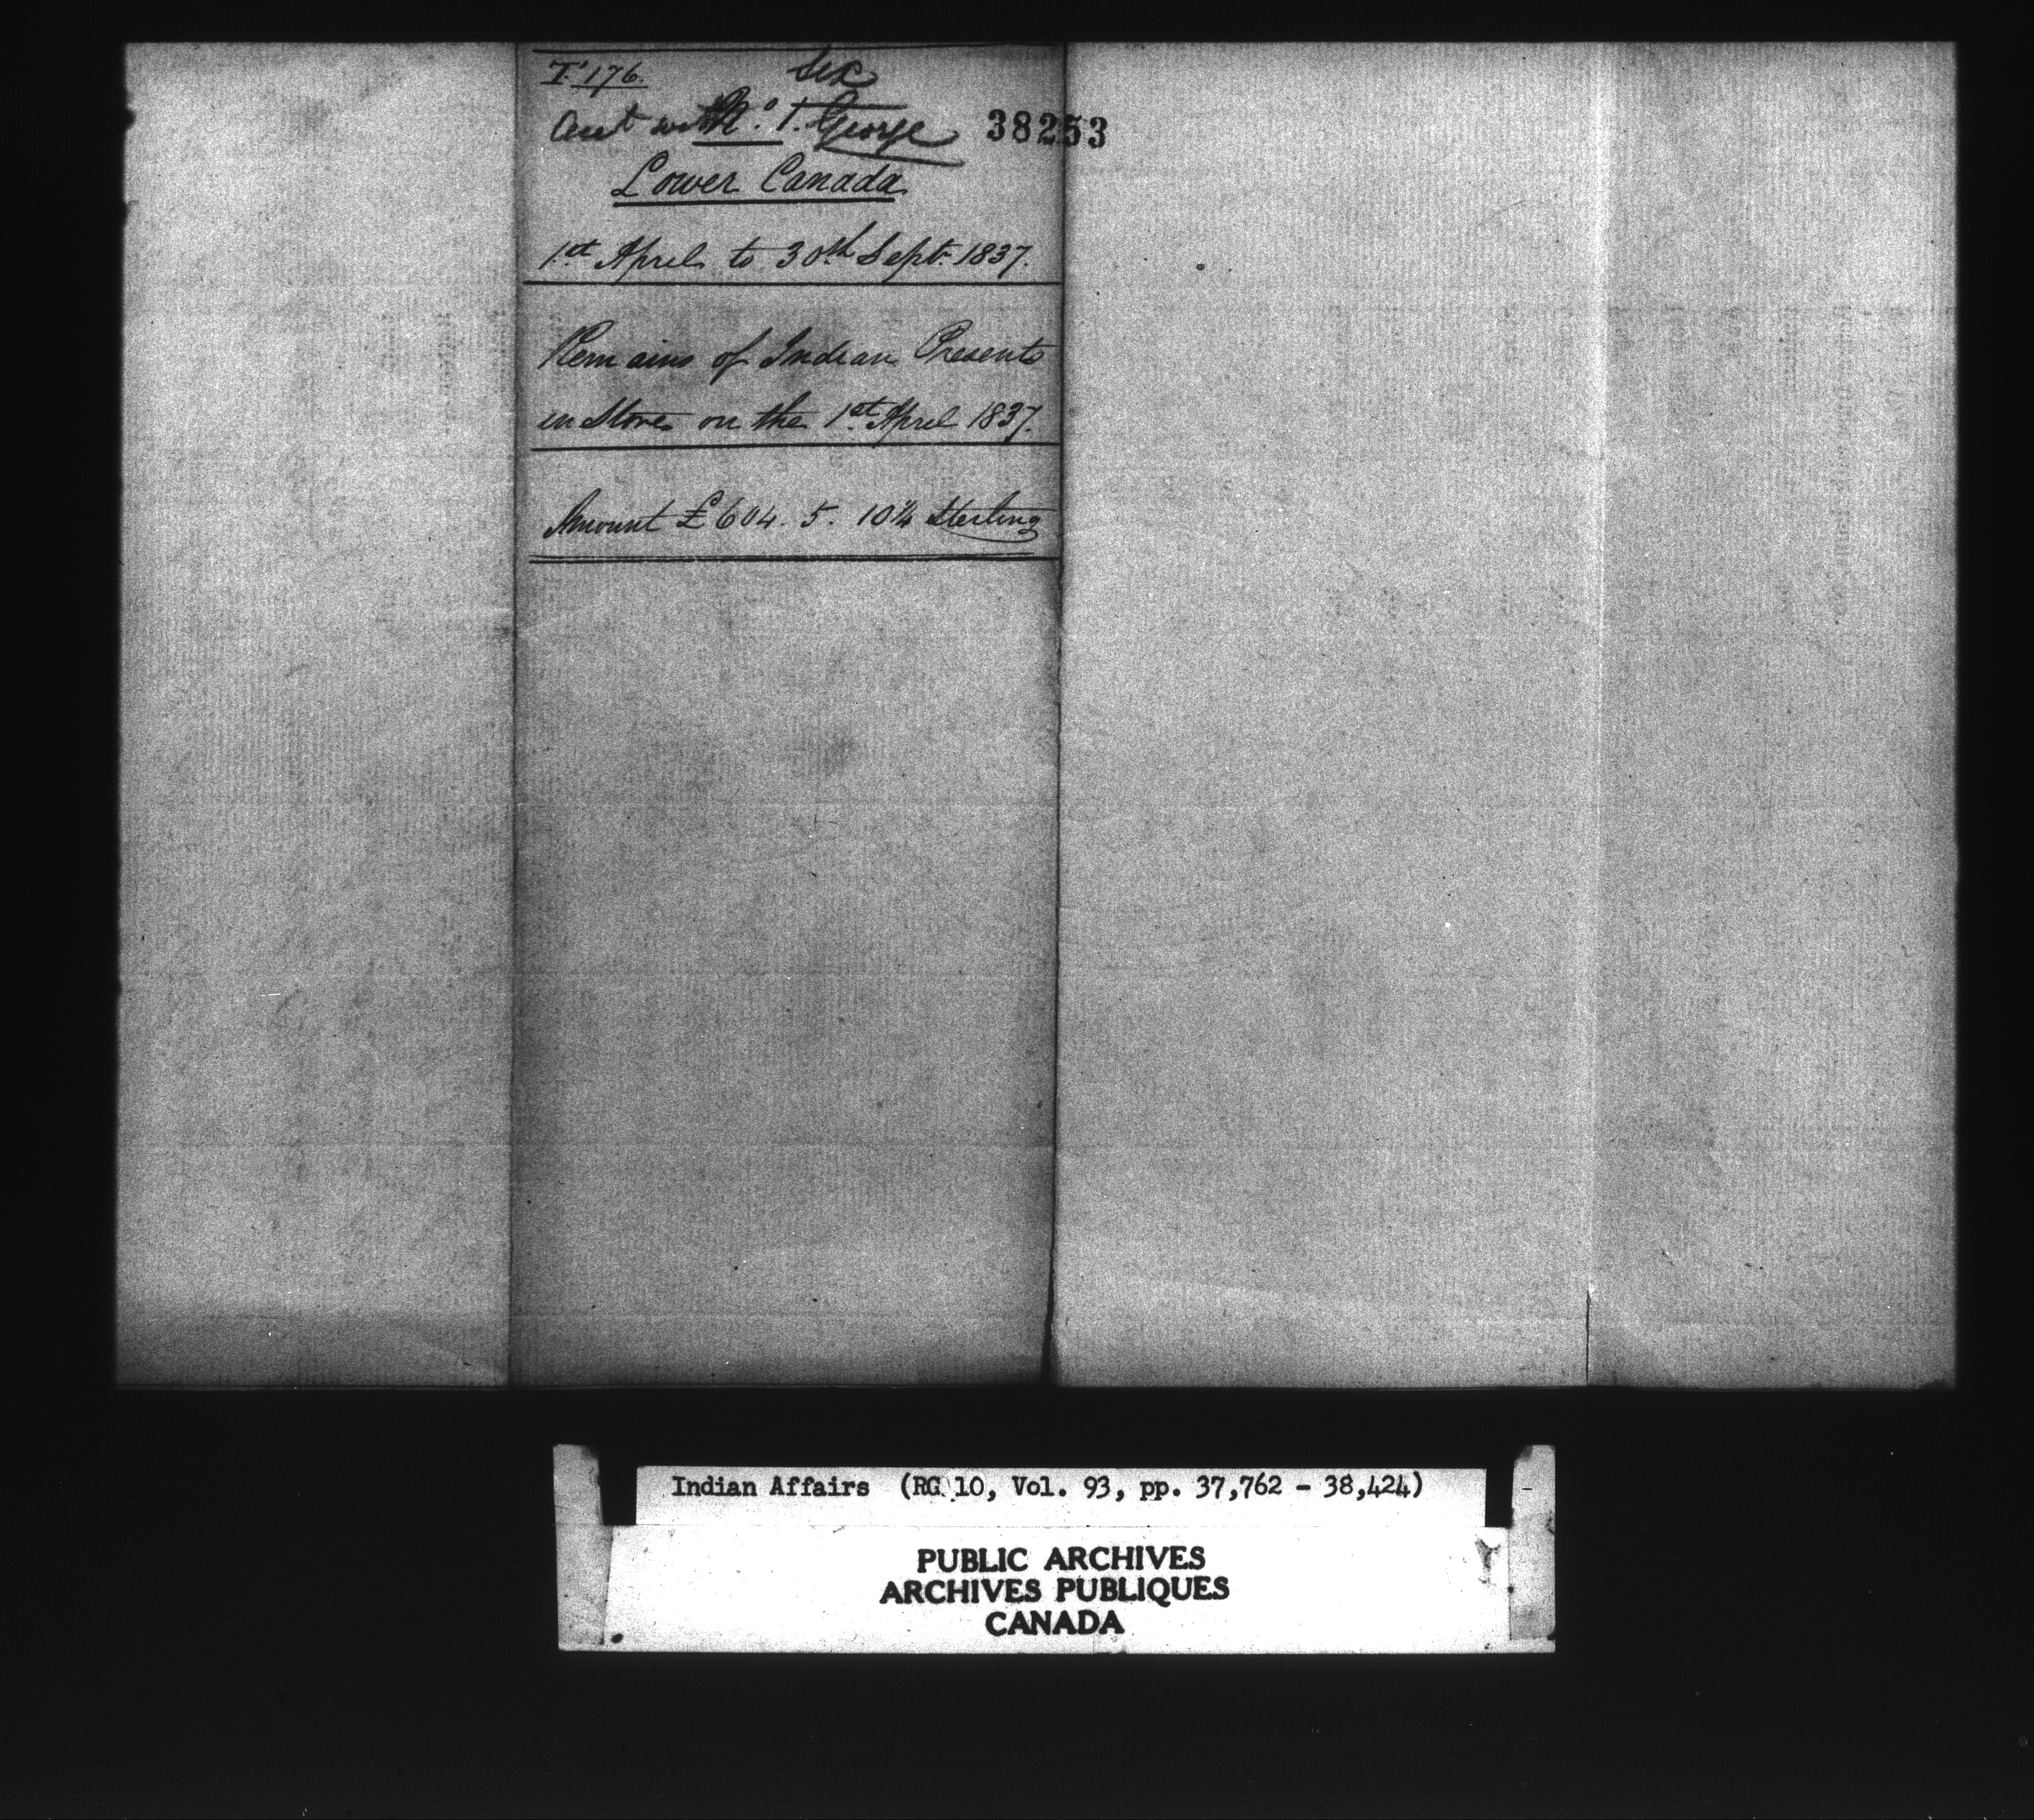 T. 176. Sex
Acct with No. 1. George 38253
Lower Canada
1st April to 30th Sept. 1837.
Remains of Indian Presents
in Store on the 1st April 1837.
Amount £604. 5. 10¼ Sterling
Indian Affairs (RG 10, Vol. 93, pp. 37,762 - 38,424)
PUBLIC ARCHIVES
ARCHIVES PUBLIQUES
CANADA